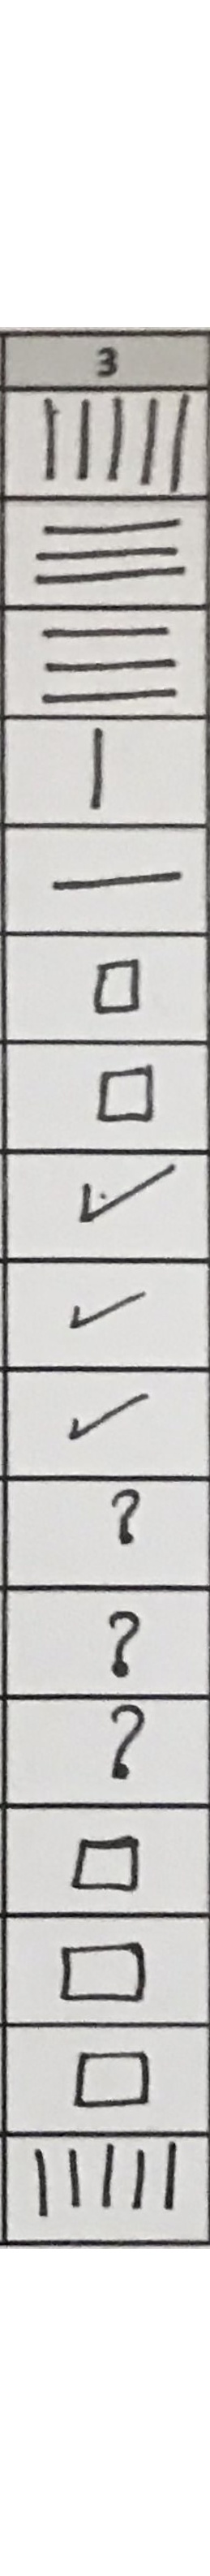 3
| | | | |
☰
☰
|
—
□
□
✓
✓
✓
?
?
?
□
□
□
| | | | |